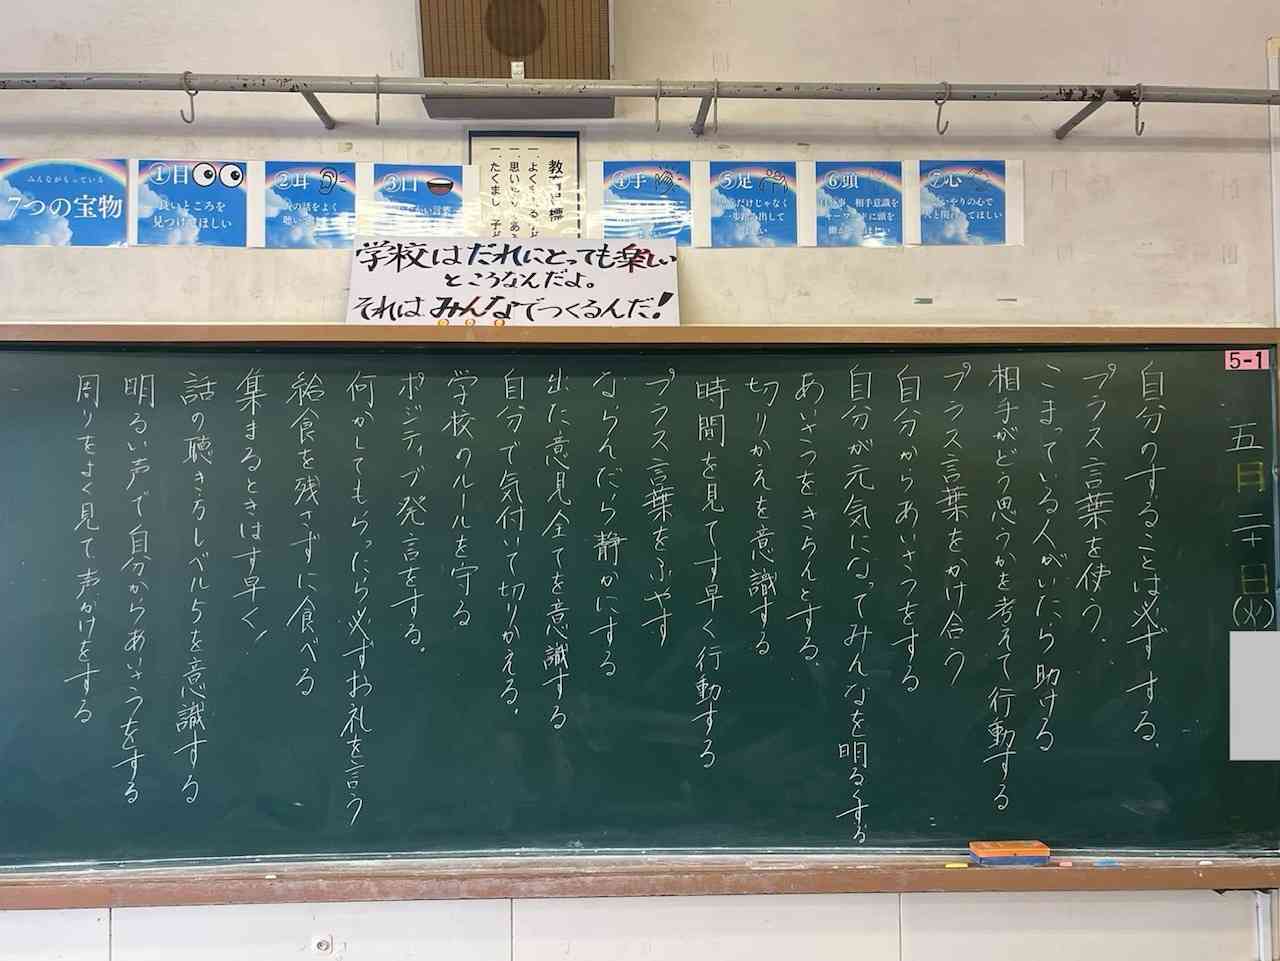 みんながもっている
7つの宝物
①目
良いところを
見つけてほしい
②耳
の話をよく
③口
教育目標
一、よく
一、思いやり ある
一、たくまし 子
④手
⑤足
だけじゃなく
一歩踏み出して
ほしい
⑥頭
事、相手意識を
キーワードに頭を
働かせてほしい
⑦心
思いやりの心で
人と関わってほしい
学校はだれにとっても楽しい
ところなんだよ。
それはみんなでつくるんだ!
5-1
五月二十日(火)
自分のすることは必ずする。
プラス言葉を使う。
こまっている人がいたら助ける
相手がどう思うかを考えて行動する
プラス言葉をかけ合う
自分からあいさつをする
自分が元気になってみんなを明るくする
あいさつをきちんとする。
切りかえを意識する
時間を見てす早く行動する
プラス言葉をふやす
ならんだら静かにする
出た意見全てを意識する
自分で気付いて切りかえる。
学校のルールを守る
ポジティブ発言をする。
何かしてもらったら必ずお礼を言う
給食を残さずに食べる
集まるときはす早く!
話の聴き方レベル5を意識する
明るい声で自分からあいさつをする
周りをよく見て声がけをする